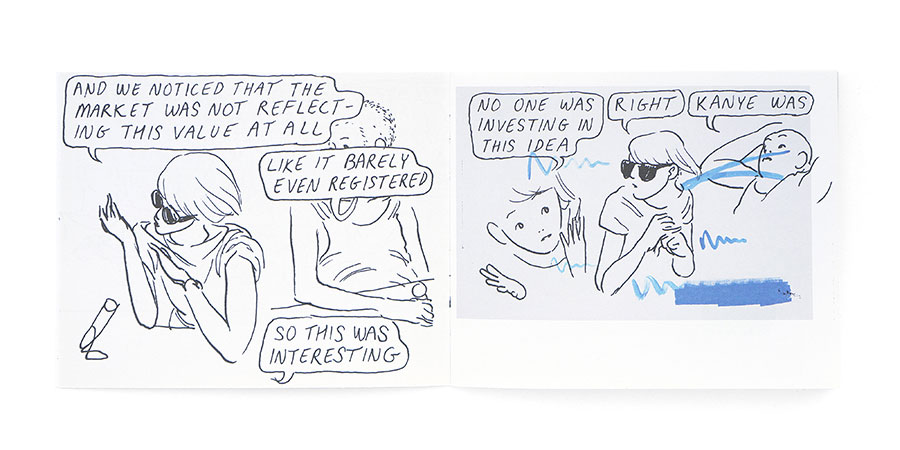 AND WE NOTICED THAT THE
MARKET WAS NOT REFLECT-
ING THIS VALUE AT ALL
LIKE IT BARELY
EVEN REGISTERED
SO THIS WAS
INTERESTING
NO ONE WAS
INVESTING IN
THIS IDEA
RIGHT
KANYE WAS